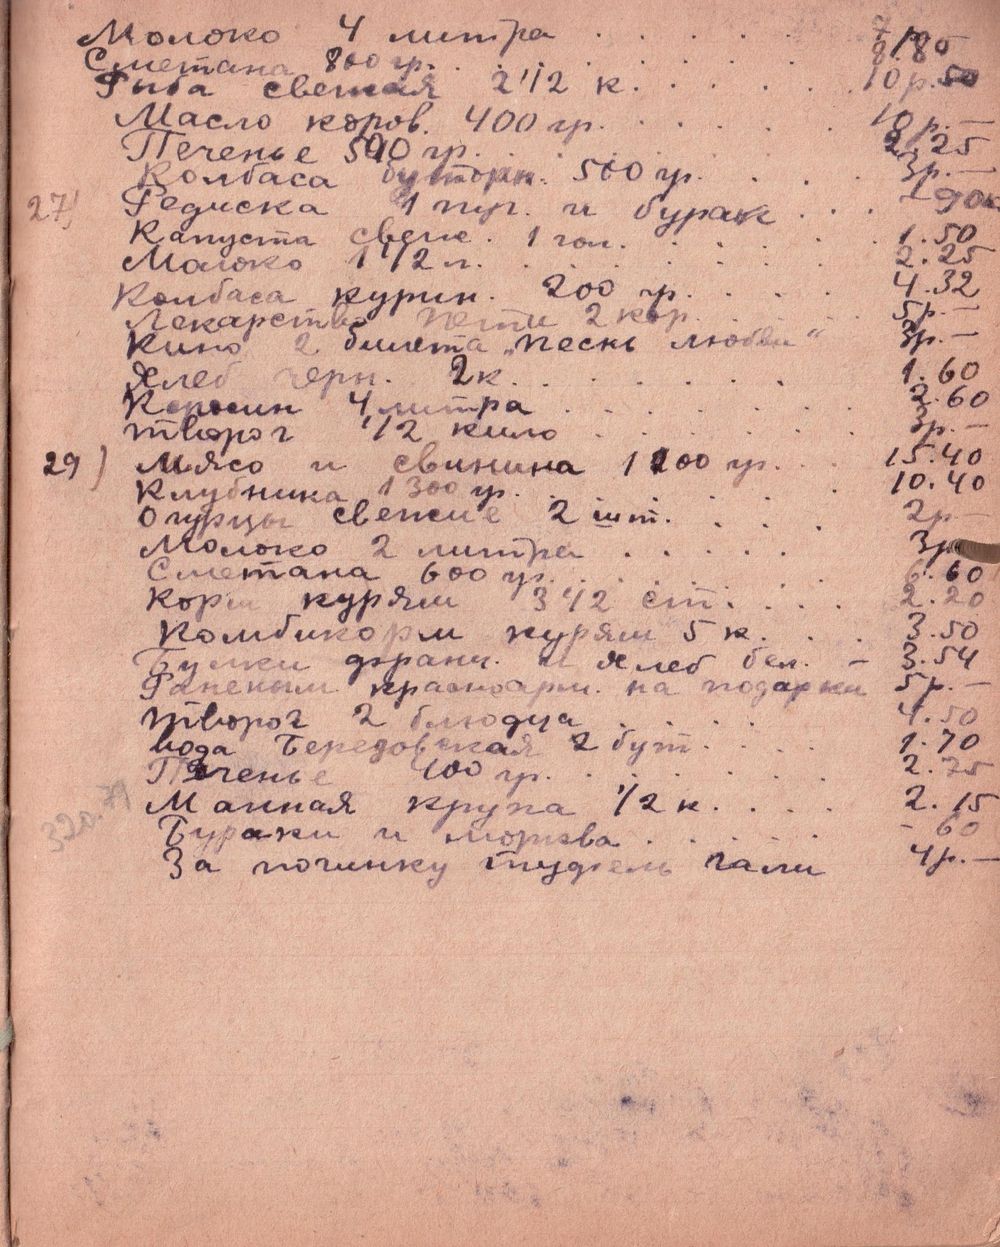 Молоко 4 литра . . . . . 7 р. –
Сметана 800 гр. . . . . . 8.80
Рыба свежая 2 1/2 к. . . . . . 10 р. 50
Масло коров. 400 гр. . . . . 10 р. –
Печенье 500 гр. . . . . . 2.25
Колбаса бутерб. 500 гр. . . . 3р. –
27) Редиска 1 пуч. и бурак . . . – 90к
Капуста свеж. 1 гол. . . . . . 1.50
Молоко 1 1/2 л. . . . . . 2.25
Колбаса курин. 200 гр. . . . 4.32
Лекарство Пети 2 кор. . . . 5р. –
Кино 2 билета „Песнь любви“ 3р. –
Хлеб черн. 2к. . . . . . 1.60
Керосин 4 литра . . . . . 2.60
Творог 1/2 кило . . . . . 3р. –
29) Мясо и свинина 1200 гр. . . 15.40
Клубника 1300 гр. . . . . 10.40
Огурцы свежие 2 шт. . . . 2р –
Молоко 2 литра . . . . . 3р
Сметана 600 гр. . . . . . 6.60
Корм курям 3 1/2 ст. . . . 2.20
Комбикорм курям 5 к. . . . 3.50
Булки франц. и хлеб бел. – 3.54
Раненым красноарм. на подарки 5р. –
Творог 2 блюдца . . . . . 4.50
Вода Березовская 2 бут. . . . 1.70
Печенье 400 гр. . . . . . 2.75
Манная крупа 1/2 к. . . . . 2.15
Бураки и морква . . . . . – 60
За починку туфель Гали 4р. –